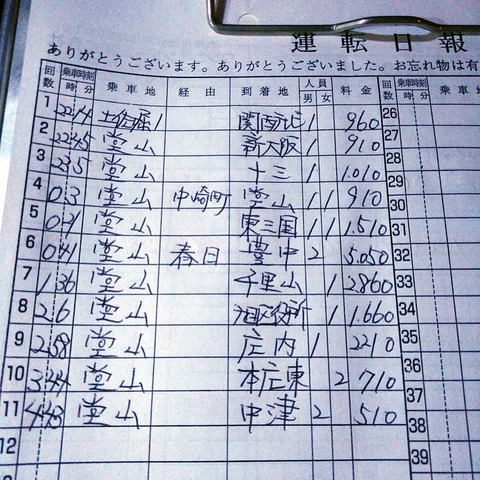 運転日報
ありがとうございます。ありがとうございました。お忘れ物は有
回数 乗車時刻 時 分 乗車地 経由 到着地 人員 男 女 料金 回数 乗車時刻 時 分 乗車地
1 22 14 土佐堀1 関西 1 960 26
2 22 45 堂山 新大阪 1 910 27
3 23 5 堂山 十三 1 1.010 28
4 0 3 堂山 中崎町 堂山 1 1 910 29
5 堂山 東三国 1 1 1.510 30
6 0 41 堂山 春日 豊中 2 5.050 31
7 1 36 堂山 千里山 1 2860 32
8 2 6 堂山 区役所 1 1.660 33
9 2 58 堂山 庄内 1 2210 34
10 3 44 堂山 本庄東 2 710 35
11 4 43 堂山 中津 2 510 36
12 37
38
39